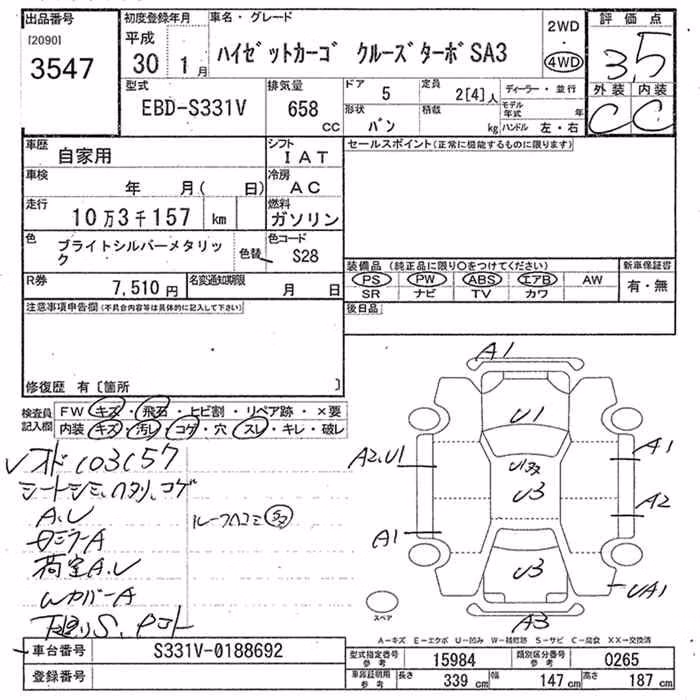 出品番号
[2090]
3547
初度登録年月
平成
30 1月
車名・グレード
ハイゼットカーゴ クルーズターボSA3
2WD
・
4WD
評価点
3.5
外装 内装
C C
型式
EBD-S331V
排気量
658
CC
ドア
5
定員
2[4]人
形状
バン
積載
kg
ディーラー・並行
モデル年式 年
ハンドル 左・右
車歴
自家用
シフト
IAT
セールスポイント(正常に機能するものに限ります)
車検
年 月( 日)
冷房
AC
走行
10万3千157 km
燃料
ガソリン
色
ブライトシルバーメタリック
色替
色コード
S28
装備品 (純正品に限り○をつけてください)
PS PW ABS エアB AW
SR ナビ TV カワ
新車保証書
有・無
R券
7,510円
名変通知期限
月 日
後日品
注意事項申告欄(不具合内容等は具体的に記入して下さい)
修復歴 有[箇所 ]
検査員記入欄
FW キズ・飛石・ヒビ割・リペア跡・×要
内装 キズ・汚レ・コゲ・穴・スレ・キレ・破レ
103157
シートシミ、ハタリ、コゲ
A.U
ルーフヘコミ 多
ミラーA
荷室A.U
WカバーA
下廻りS.
A1
U1
U1多
U3
A2.U1
A1
A1
A2
U3
UA1
A3
スペア
A-キズ E-エクボ U-凹み W-補修跡 S-サビ C-腐食 XX-交換済
車台番号
S331V-0188692
登録番号
型式指定番号
参考
15984
類別区分番号
参考
0265
車庫証明用
参考
長さ 339 cm 幅 147 cm 高さ 187 cm